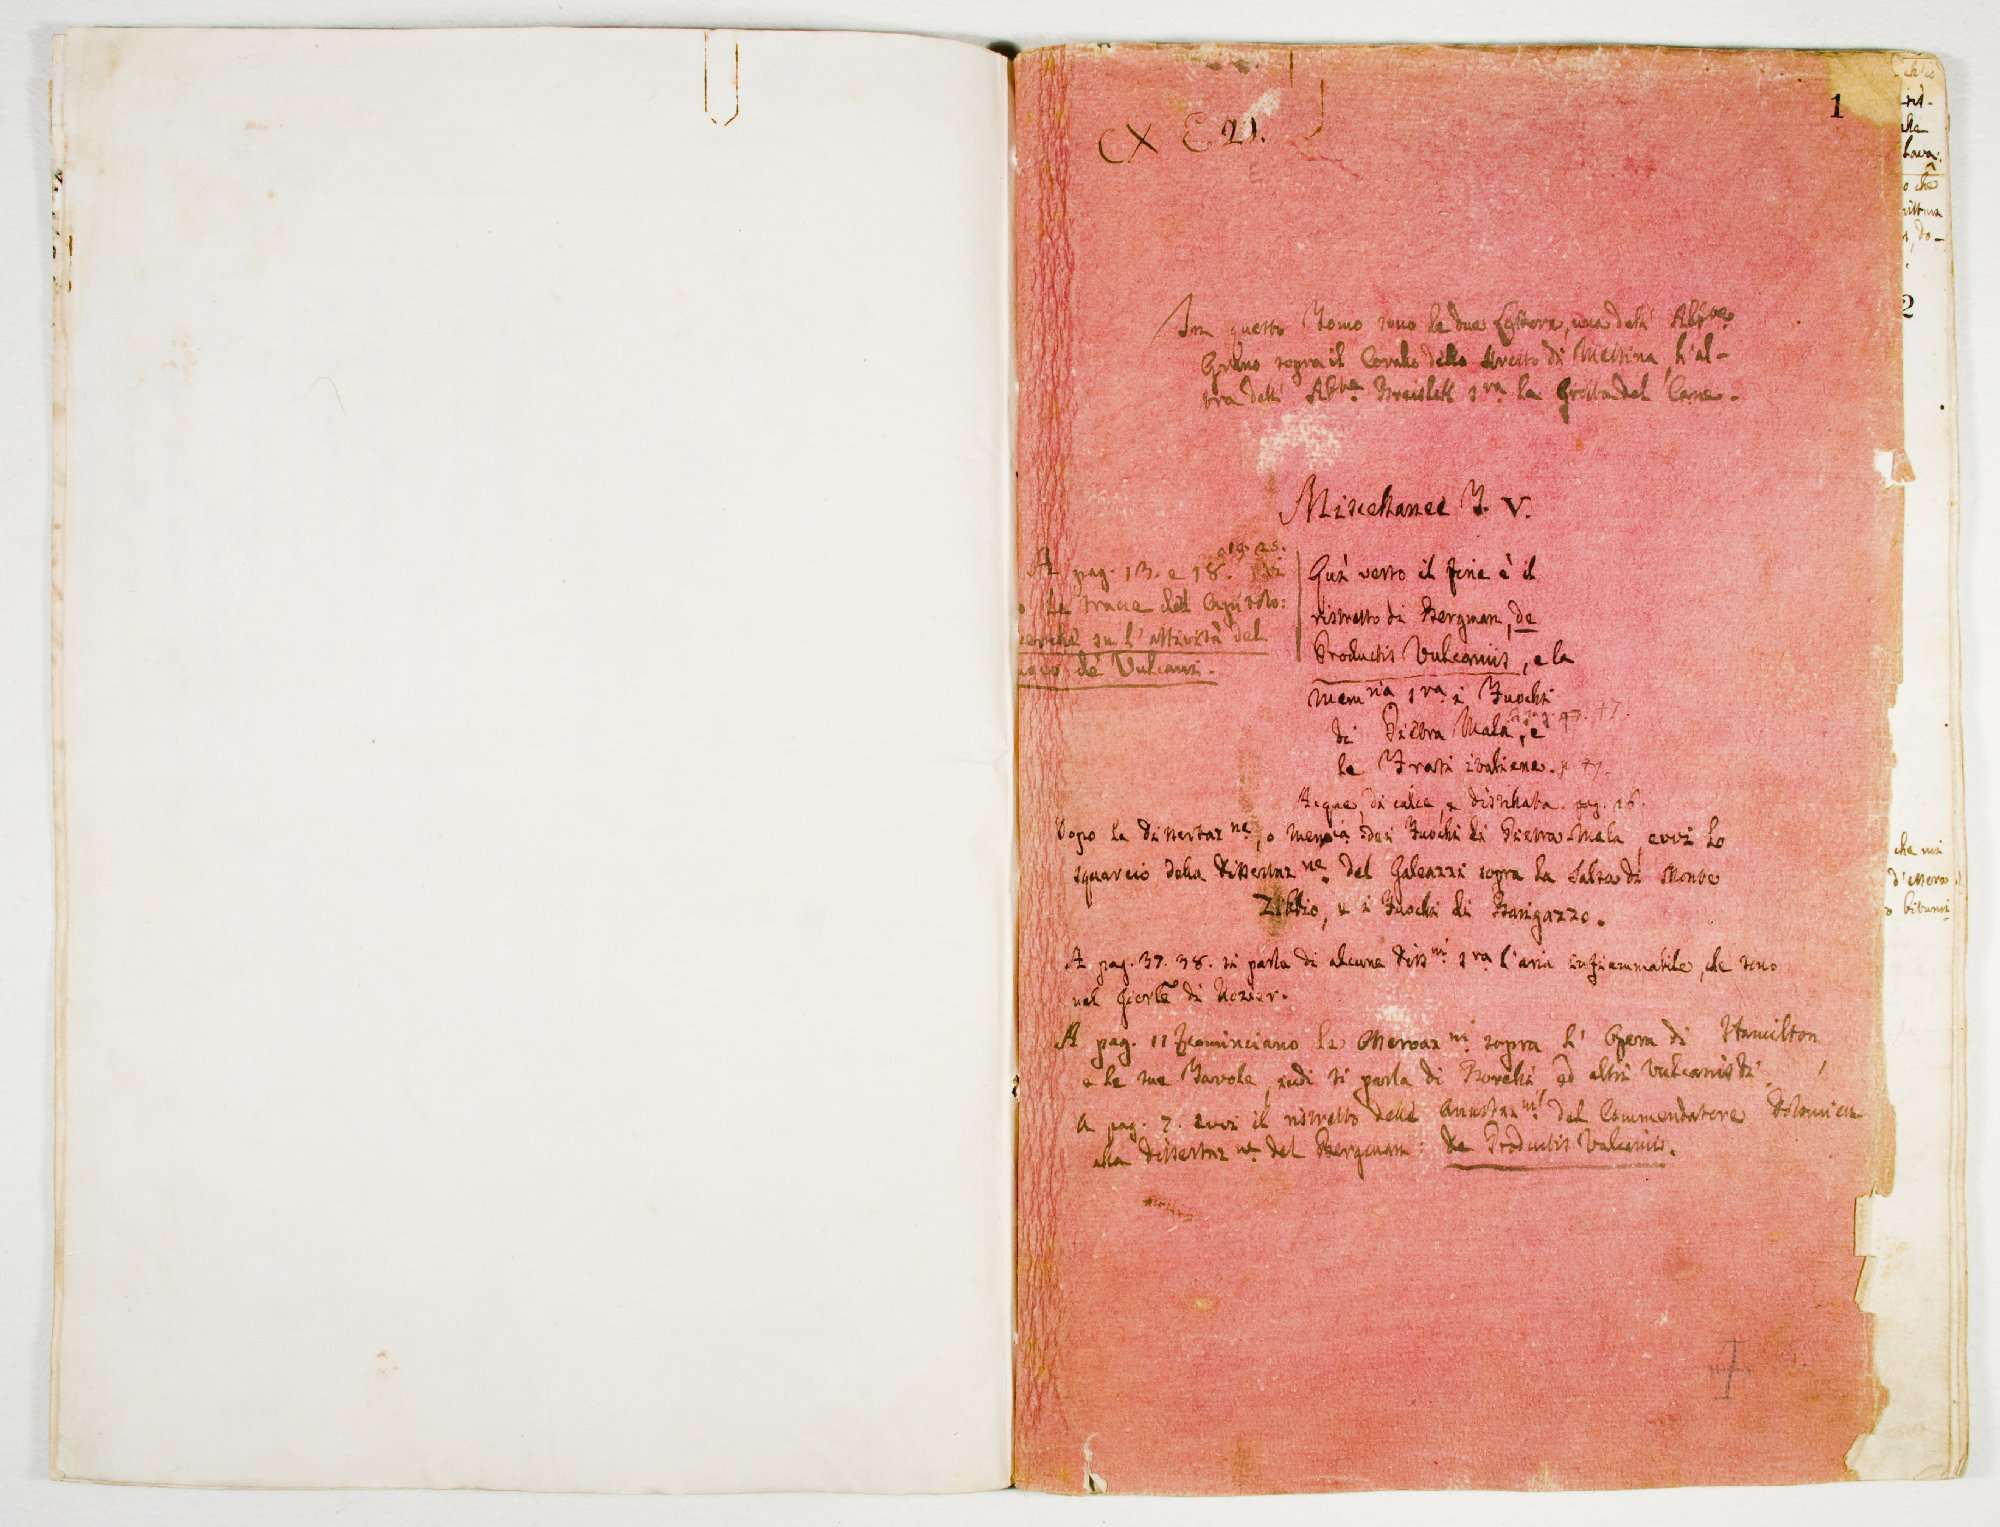 CX E 2).
1
In questo Tomo sono le due Lettere, una dell' Abte
Grano sopra il Corallo dello stretto di Messina, l'al-
tra dell' Abte Breislak sra la Grotta del Cane.
Miscellanee T. V.
19. 25.
A pag. 13. e 18. vi
le tracce del Capitolo:
su l'attività del
de' Vulcani.
Quì verso il fine è il
ristretto di Bergman, de
Productis Vulcaniis, e la
Memria sra i Fuochi
di Pietra Mala, e
le Frasi italiane. p. 47.
Acque di calce, e distillata. pag. 16.
Dopo la Dissertazne, o Memoria dei Fuochi di Pietra Mala, evvi lo
squarcio della Dissertazne del Galeazzi sopra la Salsa di Monte
Zibbio, e i Fuochi di Barigazzo.
A pag. 37. 38. si parla di alcune Dissni sra l'aria infiammabile, che sono
nel Giorle di Rozier.
A pag. 11 cominciano le Osservazni sopra l' Opera di Hamilton
e le sue Tavole, indi si parla di Borelli, ed altri Vulcanisti.
A pag. 7. evvi il ristretto delle Annotazni del Commendatore Dolomieu
alla Dissertazne del Bergman: de Productis Vulcaniis.
2